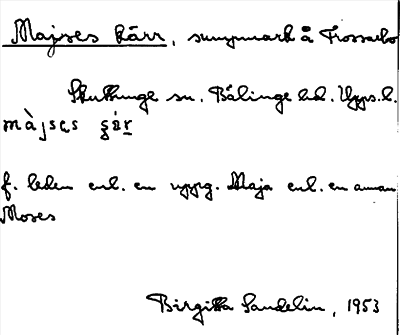 Majses kärr, sumpmark å Frossarbo
Skuttunge sn. Bälinge hd. Upps.l.
màjsęs çær
f. leden enl. en uppg. Maja enl. en annan
Moses
Birgitta Sandelin, 1953